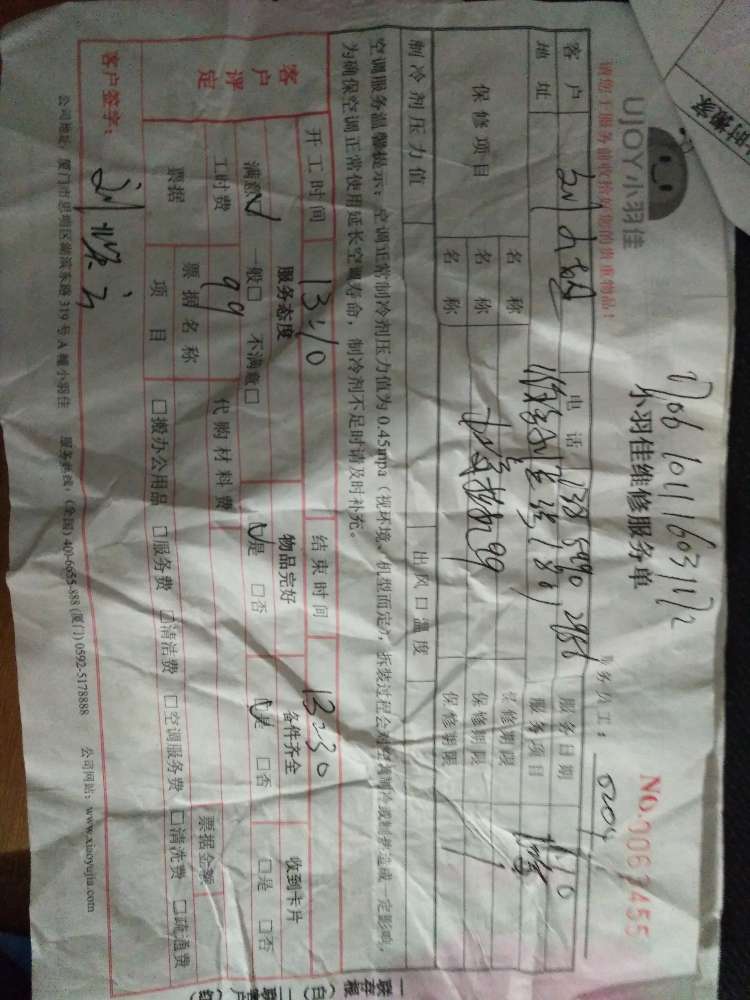 UJOY小羽佳
小羽佳维修服务单
NO.0063455
请您于服务前收捡好您的贵重物品!
务员工: 0204
客户 电话 服务日期 11.10
地址 服务项目
保修项目 名称 保修期限
名称 99 保修期限
名称 保修期限
制冷剂压力值 出风口温度
空调服务温馨提示:空调正常制冷剂压力值为0.45mpa(视环境、机型而定),拆装过程会对空调制冷或制热造成一定影响,
为确保空调正常使用延长空调寿命,制冷剂不足时请及时补充。
开工时间 13:10 结束时间 13:30
客户评定 服务态度 物品完好 备件齐全 收到卡片
满意☑ 一般□ 不满意□ ☑是 □否 ☑是 □否 □是 □否
工时费 99 代购材料费 票据金额
票据 票据名称
项目 □搬办公用品 □服务费 ☑清洁费 □空调服务费 □清洗费 □疏通费
客户签字:
公司地址:厦门市思明区湖滨东路319号A幢小羽佳 服务热线:(全国) 400-6655-888 (厦门) 0592-5178888 公司网站:www.xiaoyujia.com